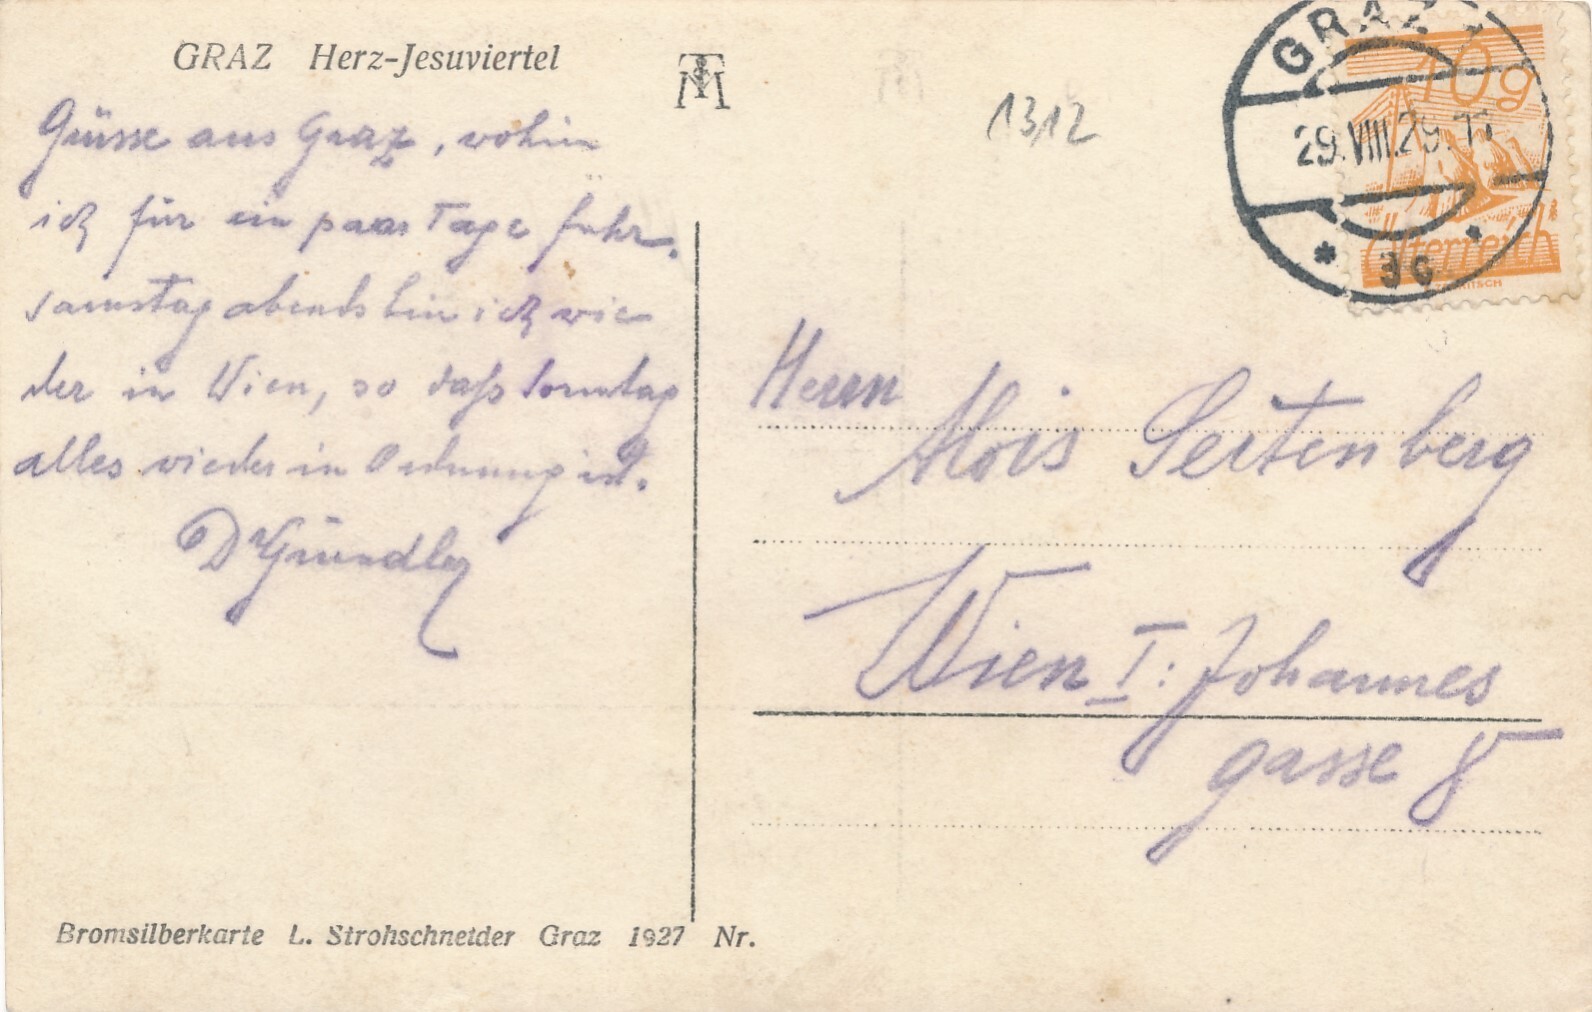 GRAZ Herz-Jesuviertel
Grüsse aus Graz, wohin
ich für ein paar Tage fuhr.
Samstag abends bin ich wie
der in Wien, so daß Sonntag
alles wieder in Ordnung ist.
Dr Gründler
Bromsilberkarte L. Strohschneider Graz 1927 Nr.
1312
GRAZ
29.VIII.29.11
* 3c *
10g
Österreich
Herrn
Alois Seitenberg
Wien I: Johannes
gasse 8